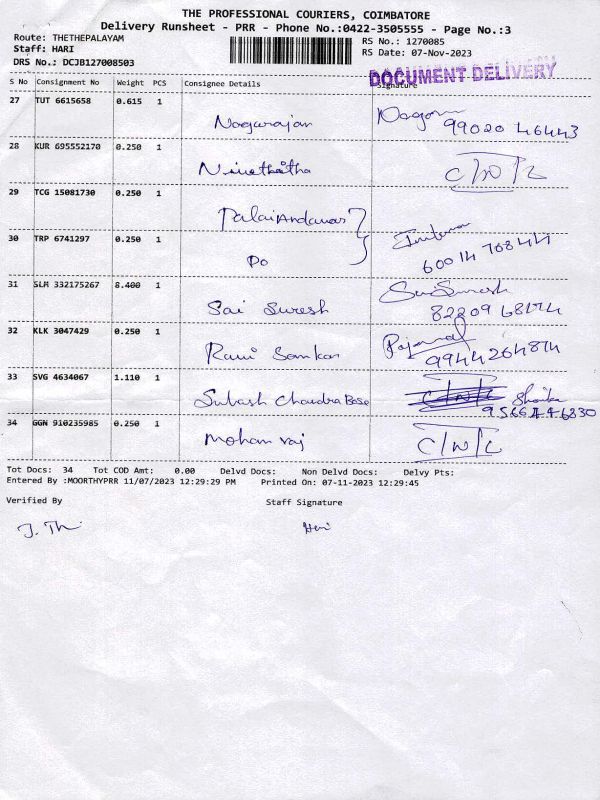 THE PROFESSIONAL COURIERS, COIMBATORE
Delivery Runsheet - PRR - Phone No.:0422-3505555 - Page No.:3
Route: THETHEPALAYAM
Staff: HARI
DRS No.: DCJB127008503
RS No.: 1270085
RS Date: 07-Nov-2023
DOCUMENT DELIVERY
S No Consignment No Weight PCS Consignee Details Signature
27 TUT 6615658 0.615 1 Nagarajan 99020 46443
28 KUR 695552170 0.250 1 C/N/L
29 TCG 15081730 0.250 1 Palai Andavar
30 TRP 6741297 0.250 1 Po 60014 70844
31 SLM 332175267 8.400 1 Sai Suresh Sai Suresh
32 KLK 3047429 0.250 1 Ravi Sankar
33 SVG 4634067 1.110 1 Subash Chandra Bose
34 GGN 910235985 0.250 1 Mohan raj C/N/L
Tot Docs: 34 Tot COD Amt: 0.00 Delvd Docs: Non Delvd Docs: Delvy Pts:
Entered By :MOORTHYPRR 11/07/2023 12:29:29 PM Printed On: 07-11-2023 12:29:45
Verified By Staff Signature
Hari